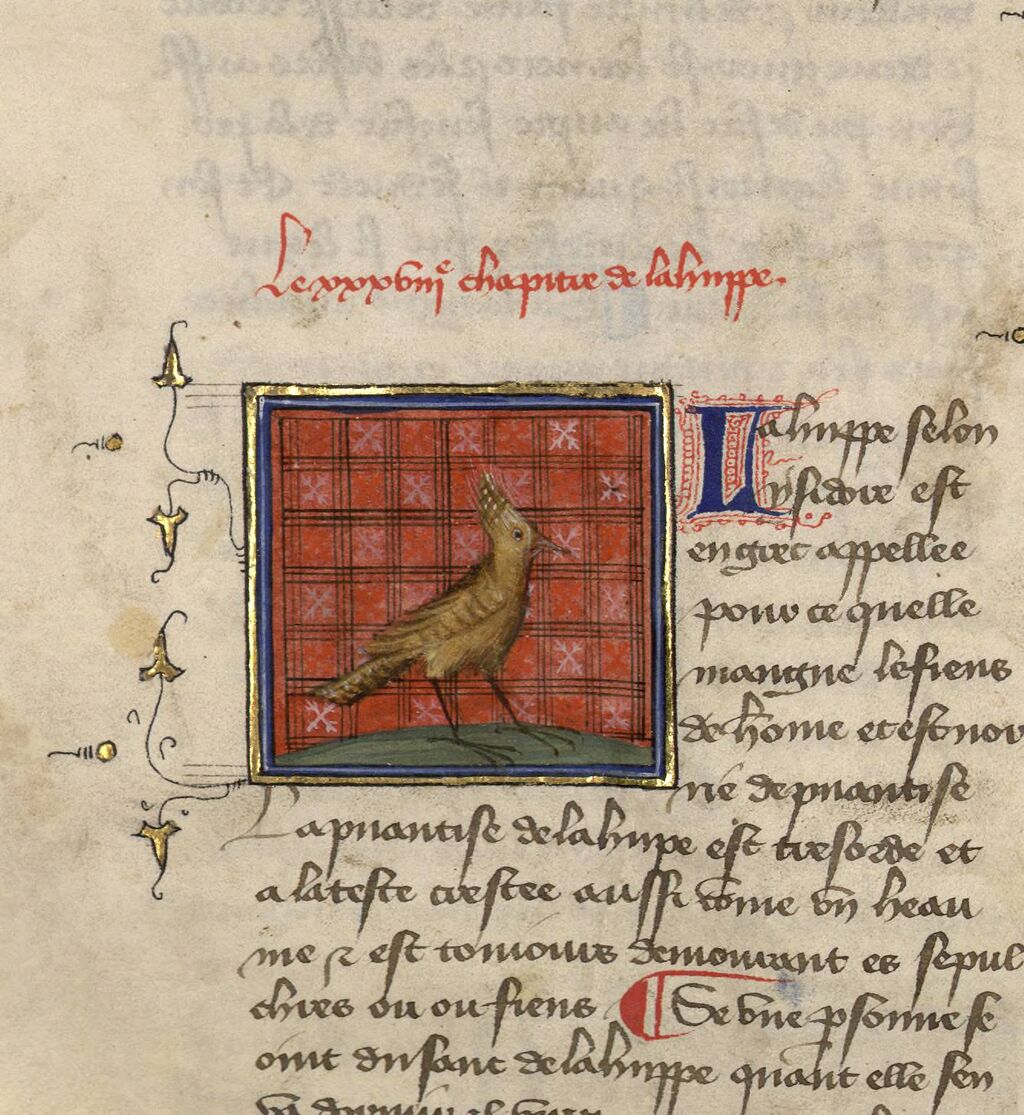 Le xxxviij.e chapitre de la huppe.
La huppe selon
ysidoire est
en grec appellee
pour ce quelle
mangue le fiens
de hom̄e et est nor
rie de puantise
La puantise de la huppe est tresorde et
a la teste crestee aussi com̄e vn heau
me et est tousiours demourant es sepul
chres ou ou fiens ¶ Se vne psonne se
oint du sanc de la huppe quant elle sen
va dormir